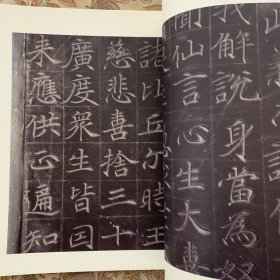 我解說身當為奴
聞仙言心生大喜
諸比丘尒時王
慈悲喜捨三十
廣度衆生皆因
來應供正遍知